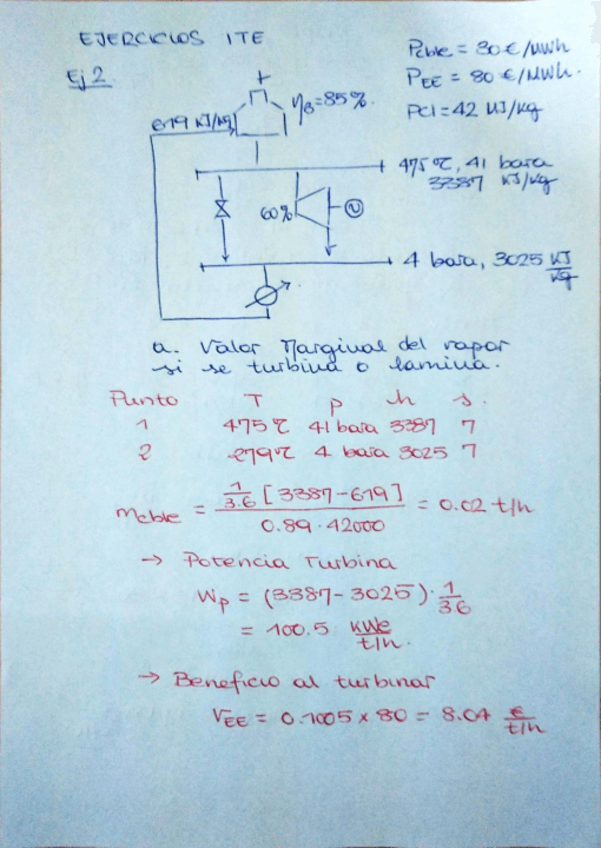 EJERCICIOS ITE
Ej 2.
Pcble = 30 €/MWh
PEE = 80 €/MWh.
PCI = 42 MJ/kg
ηB = 85%.
619 KJ/kg
475 ºC, 41 bara
3387 KJ/kg
60%
4 bara, 3025 KJ/kg
a. Valor Marginal del vapor
si se turbina o lamina.
Punto T p h s.
1 475 ºC 41 bara 3387 7
2 279 ºC 4 bara 3025 7
mcble = 1/3.6 [3387-619] / 0.89 · 42000 = 0.02 t/h
→ Potencia Turbina
Wp = (3387-3025) · 1/36
= 100.5 kWe/t/h.
→ Beneficio al turbinar
VEE = 0.1005 x 80 = 8.04 €/t/h